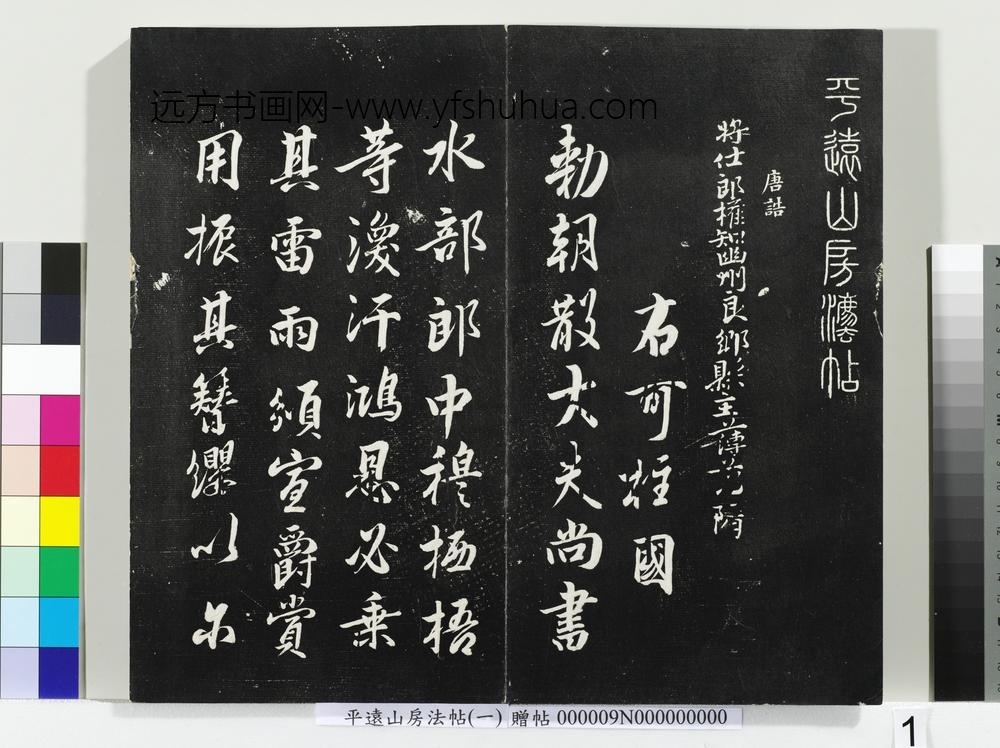 平遠山房灋帖
唐誥
將仕郎權知幽州良鄉縣主薄
右可柱國
勅朝散大夫尚書
水部郎中穆栖梧
等渙汗鴻恩必乗
其雷雨頒宣爵賞
用振其簪纓以尓
远方书画网-www.yfshuhua.com
平遠山房法帖(一) 贈帖 000009N000000000
1